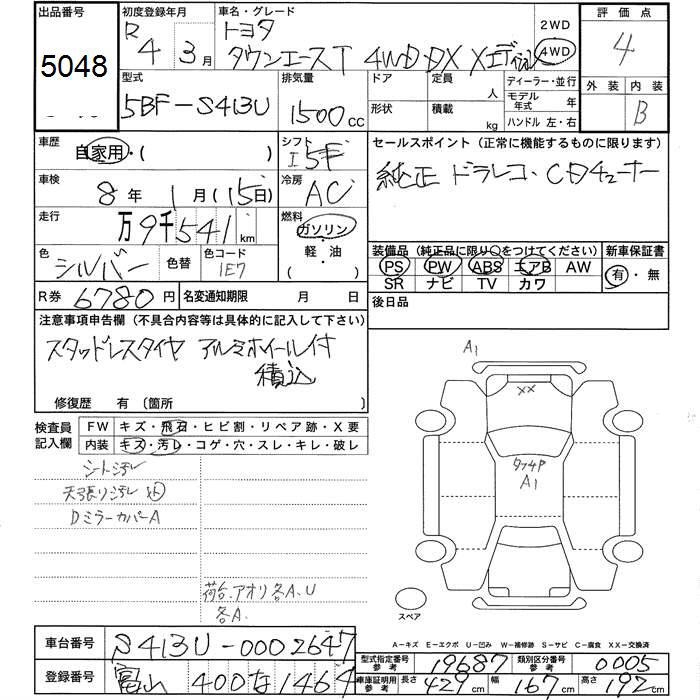 出品番号
5048
初度登録年月
R 4 3月
車名・グレード
トヨタ
タウンエースT 4WD DX Xエディション
2WD
4WD
評価点
4
外装 内装
B
型式
5BF-S413U
排気量
1500cc
ドア
形状
定員 人
積載 kg
ディーラー・並行
モデル年式 年
ハンドル 左・右
車歴
自家用・( )
シフト
I5F
車検
8年 1月(15日)
冷房
AC
走行
万9千541km
燃料
ガソリン・軽・油
( )
色
シルバー
色替
色コード
1E7
R券 6780円
名変通知期限 月 日
セールスポイント(正常に機能するものに限ります)
純正 ドラレコ・CDチューナー
装備品(純正品に限り○をつけてください)
PS PW ABS エアB AW
SR ナビ TV カワ
新車保証書
有・無
後日品
注意事項申告欄(不具合内容等は具体的に記入して下さい)
スタッドレスタイヤ アルミホイール付
積込
修復歴 有(箇所 )
検査員記入欄
FW キズ・飛石・ヒビ割・リペア跡・X要
内装 キズ・汚レ・コゲ・穴・スレ・キレ・破レ
シート汚レ
天張り汚レ
Dミラーカバー A
荷台、アオリ各A、U
各A.
A1
XX
A1
スペア
A-キズ E-エクボ U-凹み W-補修跡 S-サビ C-腐食 XX-交換済
車台番号 S413U-0002647
登録番号 富山 400 な 1464
型式指定番号 参考 19687
類別区分番号 参考 0005
車庫証明用 参考 長さ 429cm 幅 167cm 高さ 192cm